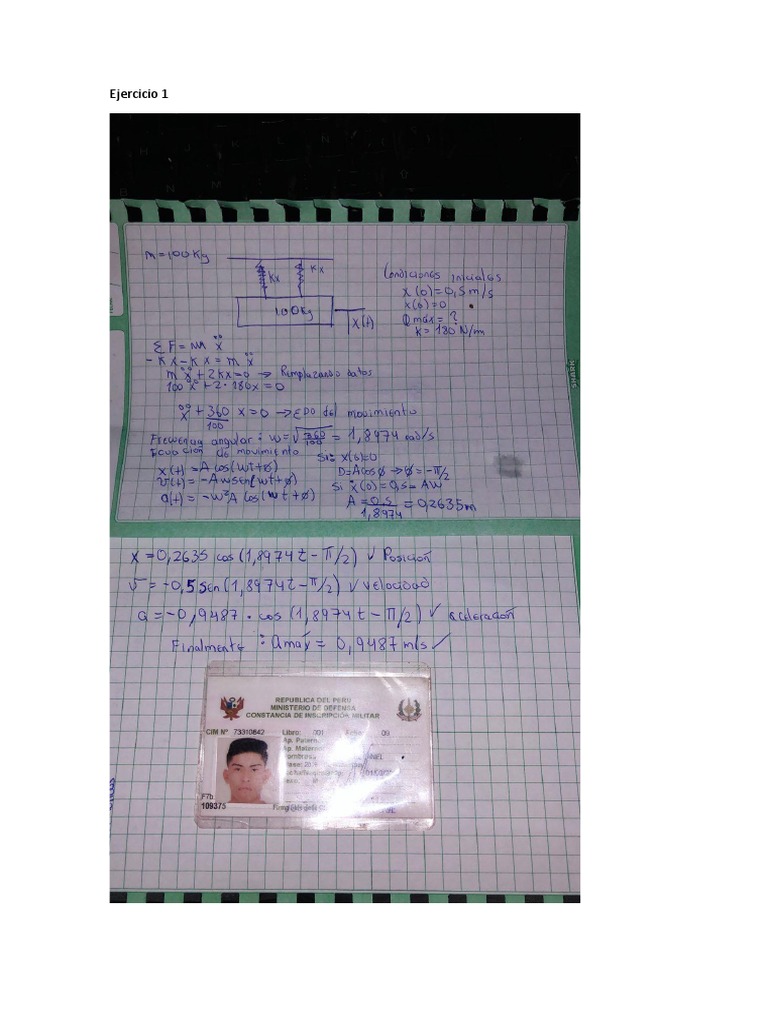 Ejercicio 1
m = 100 Kg
Kx
Kx
100Kg
X(t)
Condiciones iniciales
ẋ(0)=0,5 m/s
x(0)=0
a max = ?
K = 180 N/m
ΣF = m ẍ
-Kx-Kx = m ẍ
m ẍ + 2Kx=0 → Remplazando datos
100 ẍ + 2·180x = 0
ẍ + 360/100 x = 0 → EDO del movimiento
Frecuencia angular: w = √360/100 = 1,8974 rad/s
Ecuacion de movimiento
x(t) = A cos(wt+ø)
v(t) = -Aw sen(wt+ø)
a(t) = -w²A cos(wt+ø)
Si: x(0)=0
0=A cos ø → ø = -π/2
Si ẋ(0) = 0,5 = AW
A = 0,5/1,8974 = 0,2635m
X = 0,2635 cos (1,8974t - π/2) ✓ Posición
v = -0,5 Sen (1,8974t - π/2) ✓ Velocidad
a = -0,9487 · cos (1,8974t - π/2) ✓ aceleración
Finalmente : a max = 0,9487 m/s ✓
REPUBLICA DEL PERU
MINISTERIO DE DEFENSA
CONSTANCIA DE INSCRIPCIÓN MILITAR
CIM Nº 73310842 Libro: 001 09
Ap. Patern
Ap. Matern
F7b
109375
SHARK